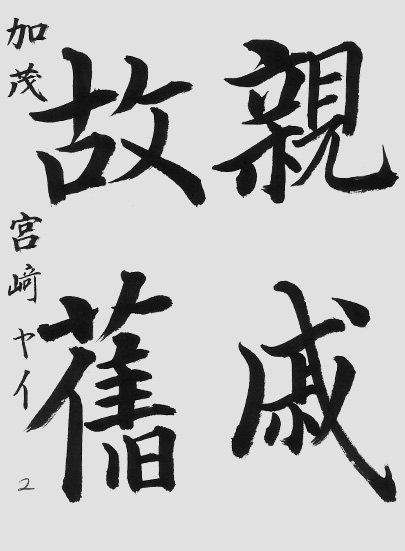 親戚
故舊
加茂 宮﨑ヤイ
2